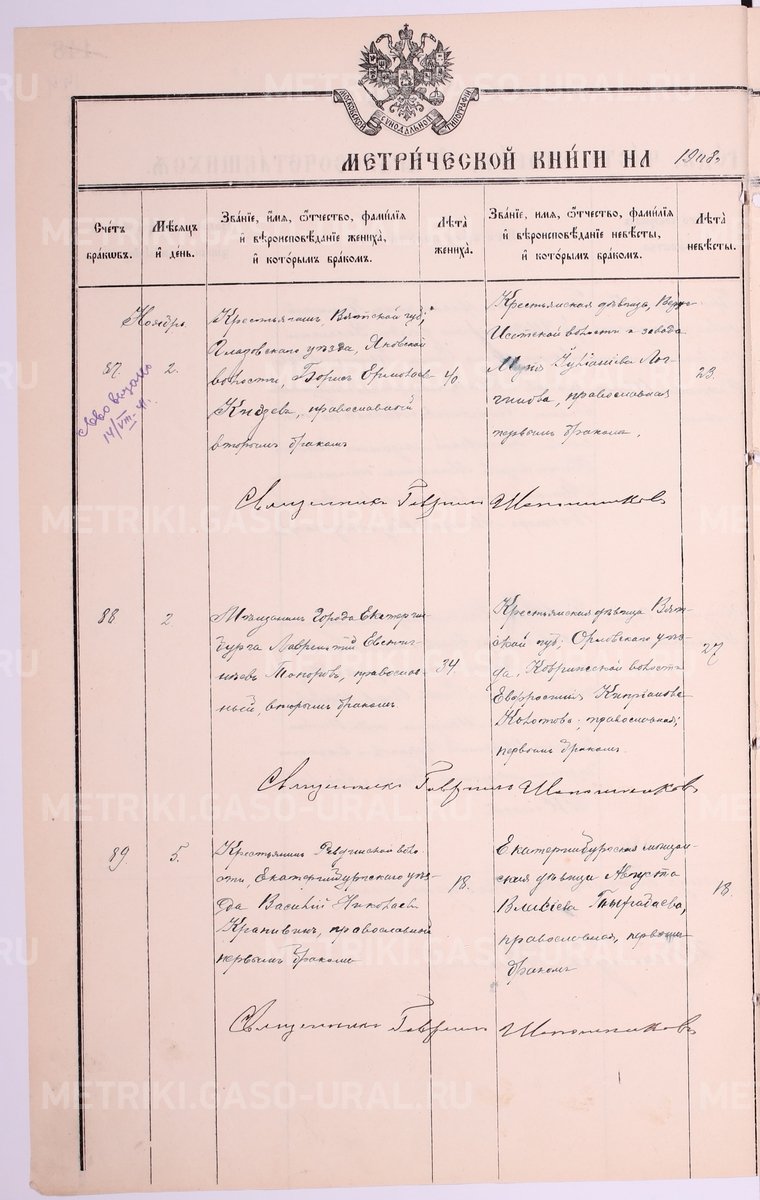 МЕТРИ́ЧЕСКОЙ КНИ́ГИ НА 1908
Сче́тъ бра́кωвъ.
Мѣ́сяцъ и҆ де́нь.
Зва́нїе, и҆́мя, ѻ҆́тчество, фами́лїя и҆ вѣроисповѣ́данїе жениха̀, и҆ кото́рымъ бра́комъ.
Лѣ́та жениха̀.
Зва́нїе, и҆́мя, ѻ҆́тчество, фами́лїя и҆ вѣроисповѣ́данїе невѣ́сты, и҆ кото́рымъ бра́комъ.
Лѣ́та невѣ́сты.
Ноябрь
87.
2.
Крестьянинъ Вятской губ.,
Глазовскаго уѣзда,
волости, Борисъ Ермолаевъ
православный
вторымъ бракомъ
40.
Крестьянская дѣвица, Верхъ-
Исетской волости и завода
Марія
православная
первымъ бракомъ.
23.
14/VIII
Священникъ Гавриилъ Шапошниковъ
88
2.
Мѣщанинъ города Екатерин-
бурга Лаврентій Евстиг-
нѣевъ Топоровъ, православ-
ный, вторымъ бракомъ
34.
Крестьянская дѣвица Вят-
ской губ., Орловскаго уѣз-
да, волости
Евфросинія Кипріанова
православная,
первымъ бракомъ.
27
Священникъ Гавриилъ Шапошниковъ
89.
5.
Крестьянинъ Ревдинской воло-
сти, Екатеринбургскаго уѣз-
да Василій Николаевъ
Крапивинъ, православный
первымъ бракомъ
18.
Екатеринбургская мѣщан-
ская дѣвица Августа
православная, первымъ
бракомъ
18.
Священникъ Гавриилъ Шапошниковъ
METRIKI.GASO-URAL.RU